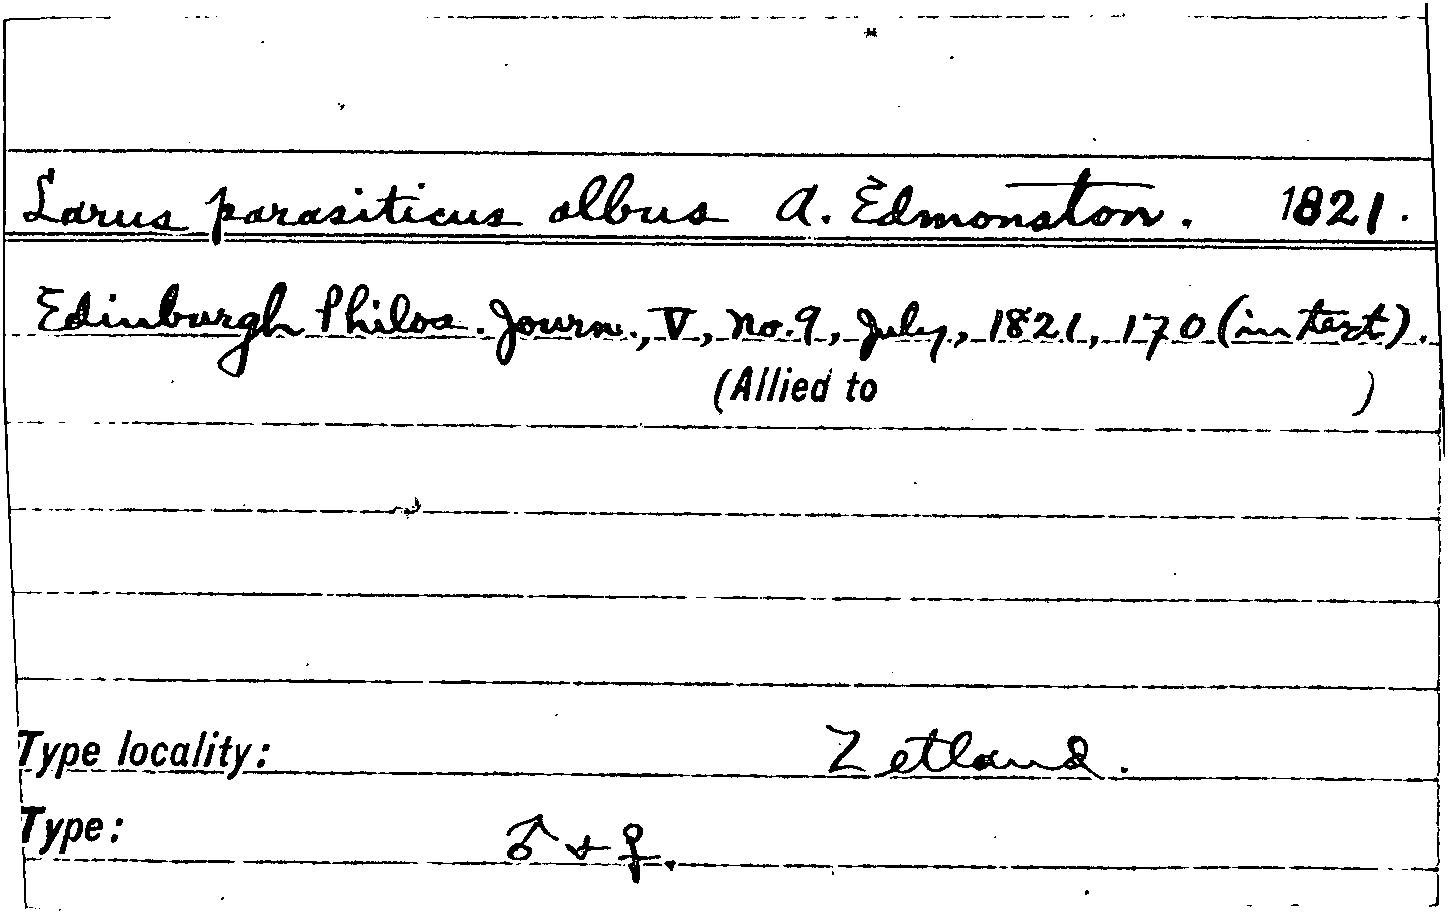 Larus parasiticus albus A. Edmonston. 1821.
Edinburgh Philos. Journ., V, No. 9, July, 1821, 170 (in text).
(Allied to )
Type locality: Zetland.
Type: ♂ + ♀.